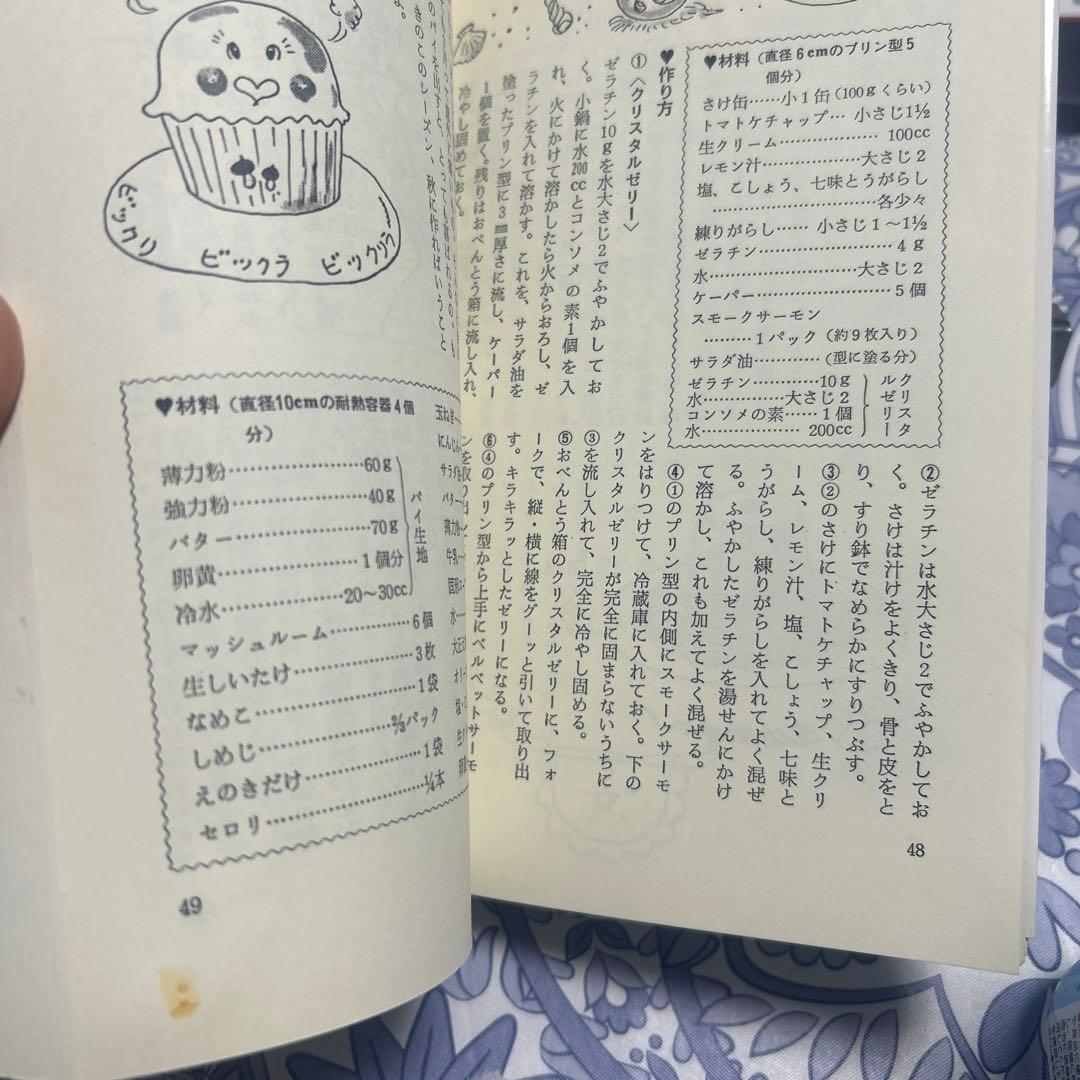 ♥材料（直径6cmのプリン型5
個分）
さけ缶……小1缶(100gくらい)
トマトケチャップ…小さじ1½
生クリーム………………100cc
レモン汁………………大さじ2
塩、こしょう、七味とうがらし
……………………各少々
練りがらし……小さじ1〜1½
ゼラチン……………………4g
水………………………大さじ2
ケーパー……………………5個
スモークサーモン
………1パック（約9枚入り）
サラダ油…………（型に塗る分）
ゼラチン…………10g
水……………大さじ2
コンソメの素……1個
水…………200cc
クリスタルゼリー
♥作り方
①〈クリスタルゼリー〉
ゼラチン10gを水大さじ2でふやかしてお
く。小鍋に水200ccとコンソメの素1個を入
れ、火にかけて溶かしたら火からおろし、ゼ
ラチンを入れて溶かす。これを、サラダ油を
塗ったプリン型に3㎜厚さに流し、ケーパー
1個を置く。残りはおべんとう箱に流し入れ、
冷やし固めておく。
②ゼラチンは水大さじ2でふやかしてお
く。さけは汁けをよくきり、骨と皮をと
り、すり鉢でなめらかにすりつぶす。
③②のさけにトマトケチャップ、生クリ
ーム、レモン汁、塩、こしょう、七味と
うがらし、練りがらしを入れてよく混ぜ
る。ふやかしたゼラチンを湯せんにかけ
て溶かし、これも加えてよく混ぜる。
④①のプリン型の内側にスモークサーモ
ンをはりつけて、冷蔵庫に入れておく。下の
クリスタルゼリーが完全に固まらないうちに
③を流し入れて、完全に冷やし固める。
⑤おべんとう箱のクリスタルゼリーに、フォ
ークで、縦・横に線をグーッと引いて取り出
す。キラキラッとしたゼリーになる。
⑥④のプリン型から上手にベルベットサーモ
ンを取り出し
48
ビックリ
ビックラ
ビックリラ
秋に作ればいうこと
♥材料（直径10cmの耐熱容器4個
分）
薄力粉……………………60g
強力粉……………………40g
バター……………………70g
卵黄……………………1個分
冷水……………20〜30cc
パイ生地
マッシュルーム……………6個
生しいたけ…………………3枚
なめこ………………………1袋
しめじ……………⅔パック
えのきだけ…………………1袋
セロリ……………………¼本
玉ねぎ
にんじん
バター
49